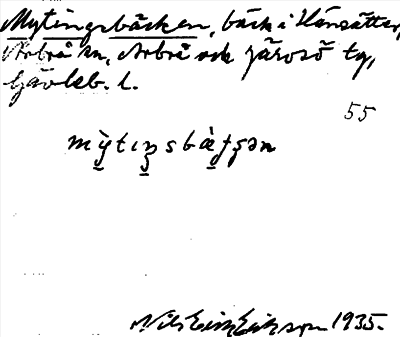 Mytingsbäcken, bäck i Hänsätter,
Arbrå sn, Arbrå och Järvsö tg,
Gävleb. l.
55
mỳ̖tıŋsbæ̀t̡ʂən
Nils Erik Eriksson 1935.